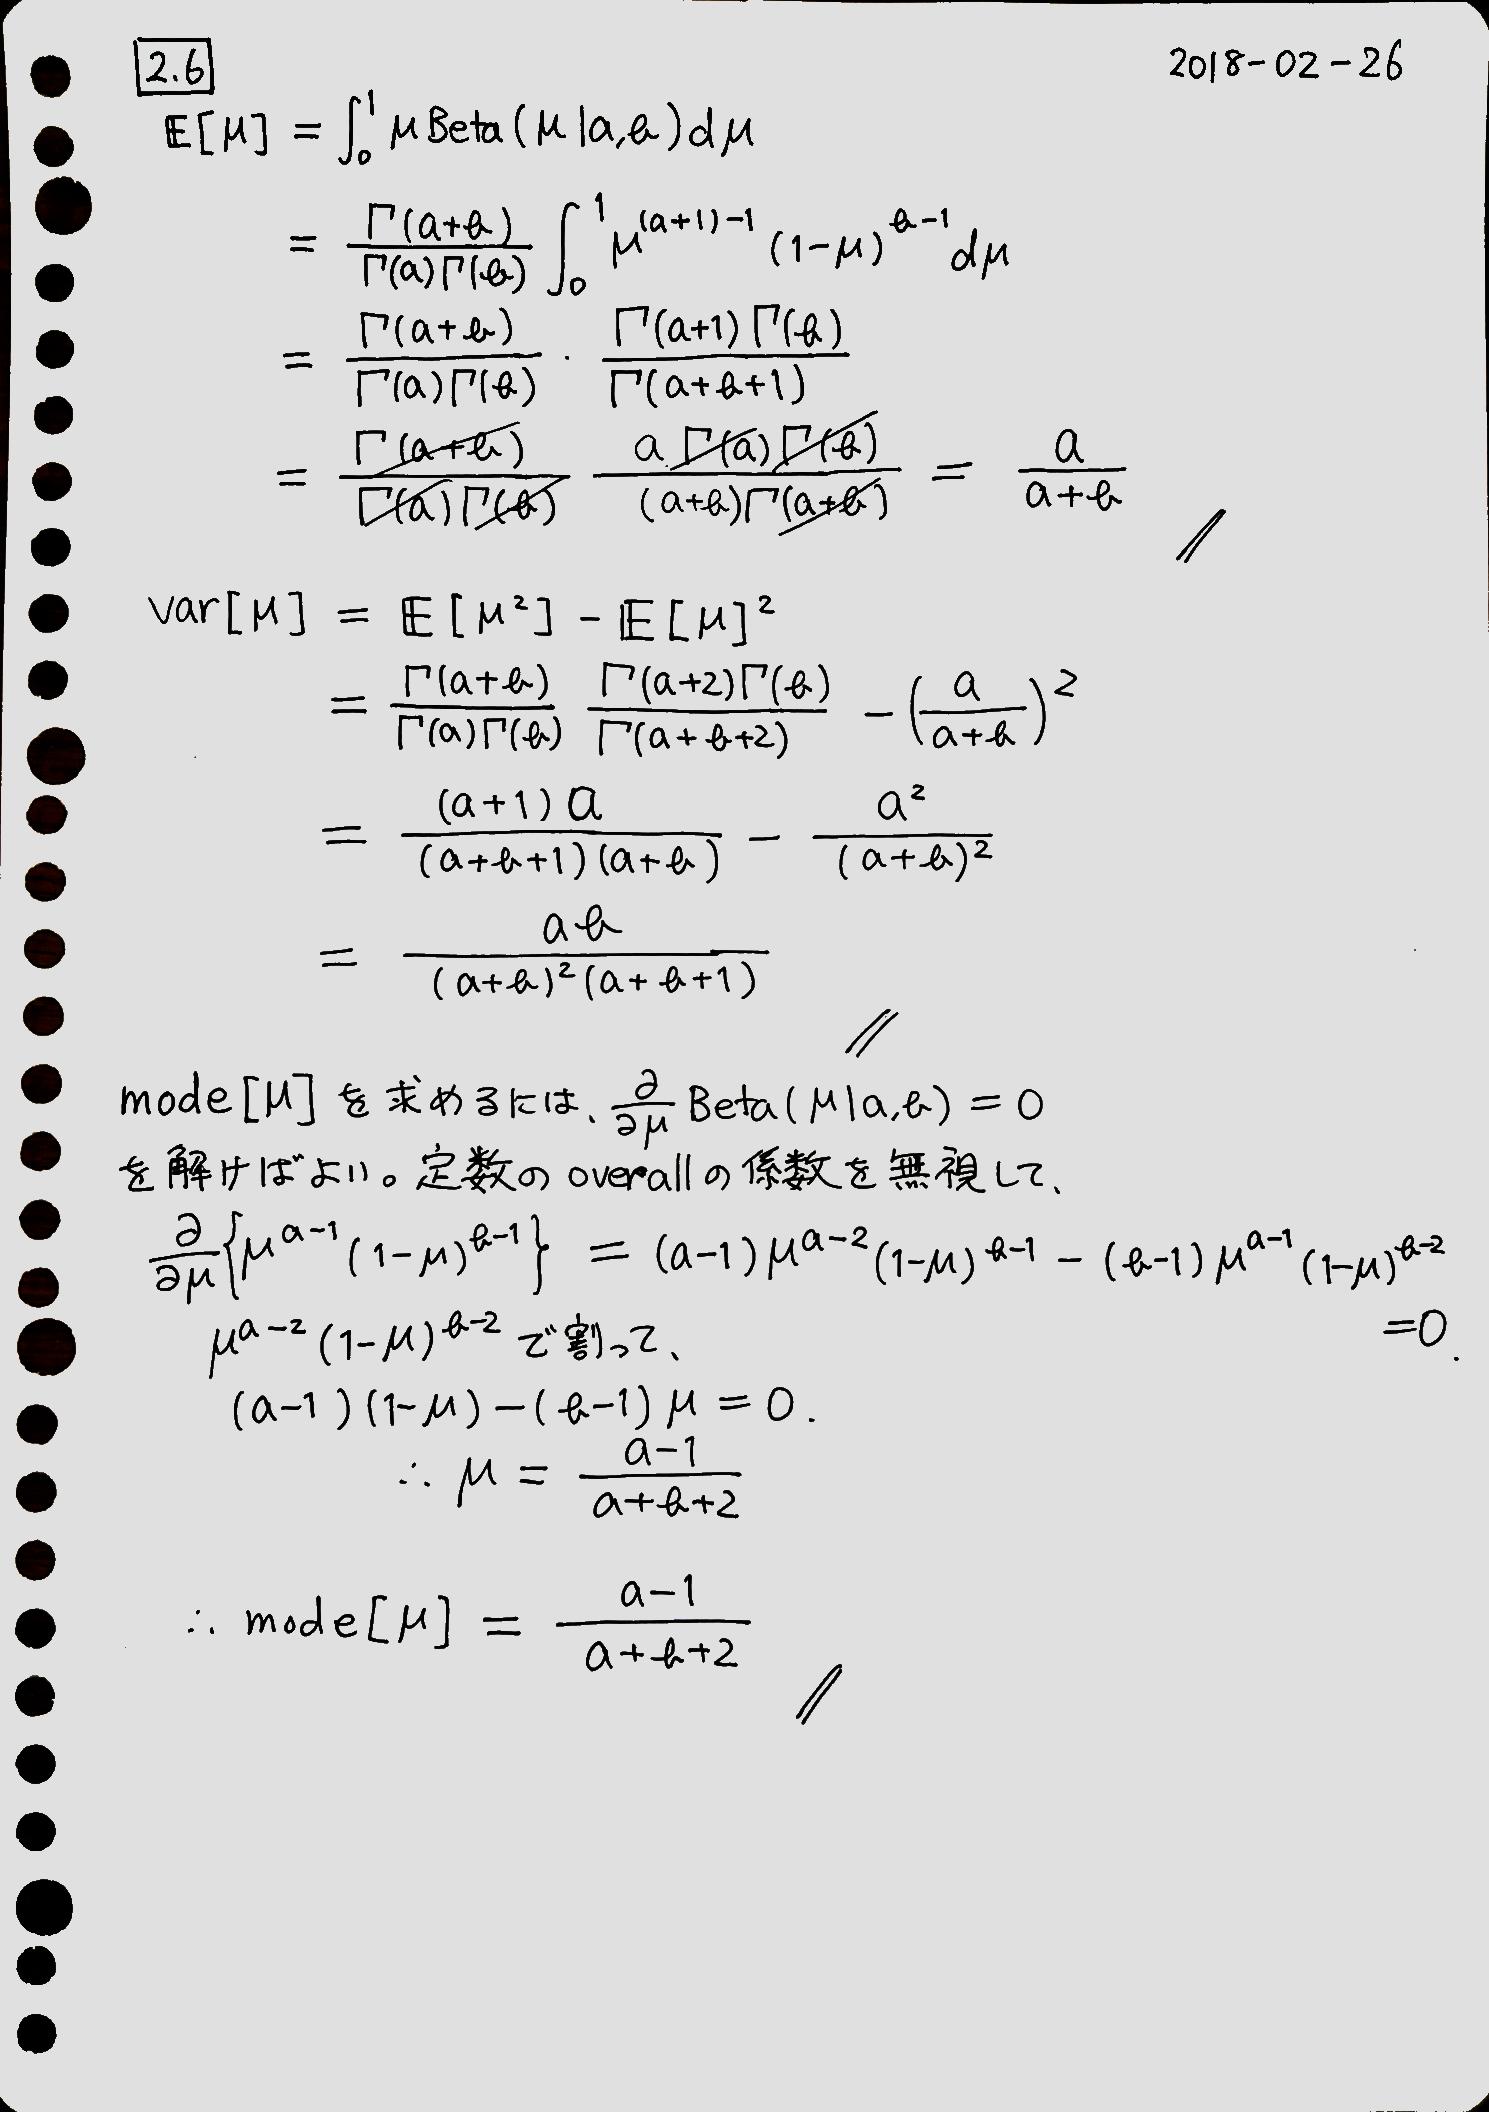 2.6 2018-02-26
𝔼[μ] = ∫₀¹ μ Beta(μ|a,b)dμ
= Γ(a+b)/Γ(a)Γ(b) ∫₀¹ μ^{(a+1)-1} (1-μ)^{b-1} dμ
= Γ(a+b)/Γ(a)Γ(b) · Γ(a+1)Γ(b)/Γ(a+b+1)
= Γ(a+b)/Γ(a)Γ(b) aΓ(a)Γ(b)/(a+b)Γ(a+b) = a/a+b //
var[μ] = 𝔼[μ²] - 𝔼[μ]²
= Γ(a+b)/Γ(a)Γ(b) Γ(a+2)Γ(b)/Γ(a+b+2) - (a/a+b)²
= (a+1)a/(a+b+1)(a+b) - a²/(a+b)²
= ab/(a+b)²(a+b+1) //
mode[μ]を求めるには、∂/∂μ Beta(μ|a,b) = 0
を解けばよい。定数のoverallの係数を無視して、
∂/∂μ{μ^{a-1}(1-μ)^{b-1}} = (a-1)μ^{a-2}(1-μ)^{b-1} - (b-1)μ^{a-1}(1-μ)^{b-2}
=0.
μ^{a-2}(1-μ)^{b-2}で割って、
(a-1)(1-μ)-(b-1)μ = 0.
∴ μ = a-1/a+b+2
∴ mode[μ] = a-1/a+b+2 //